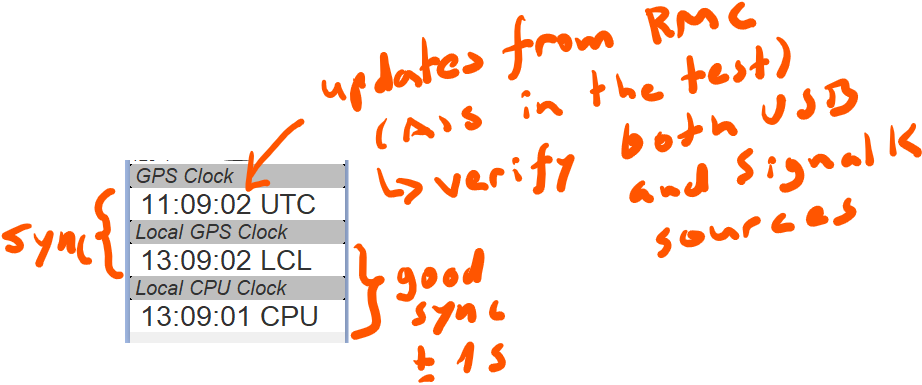 updates from RMC
(A)s in the test)
↳ verify both USB
and Signal K
sources
GPS Clock
11:09:02 UTC
Local GPS Clock
13:09:02 LCL
Local CPU Clock
13:09:01 CPU
sync
good
sync
± 1s